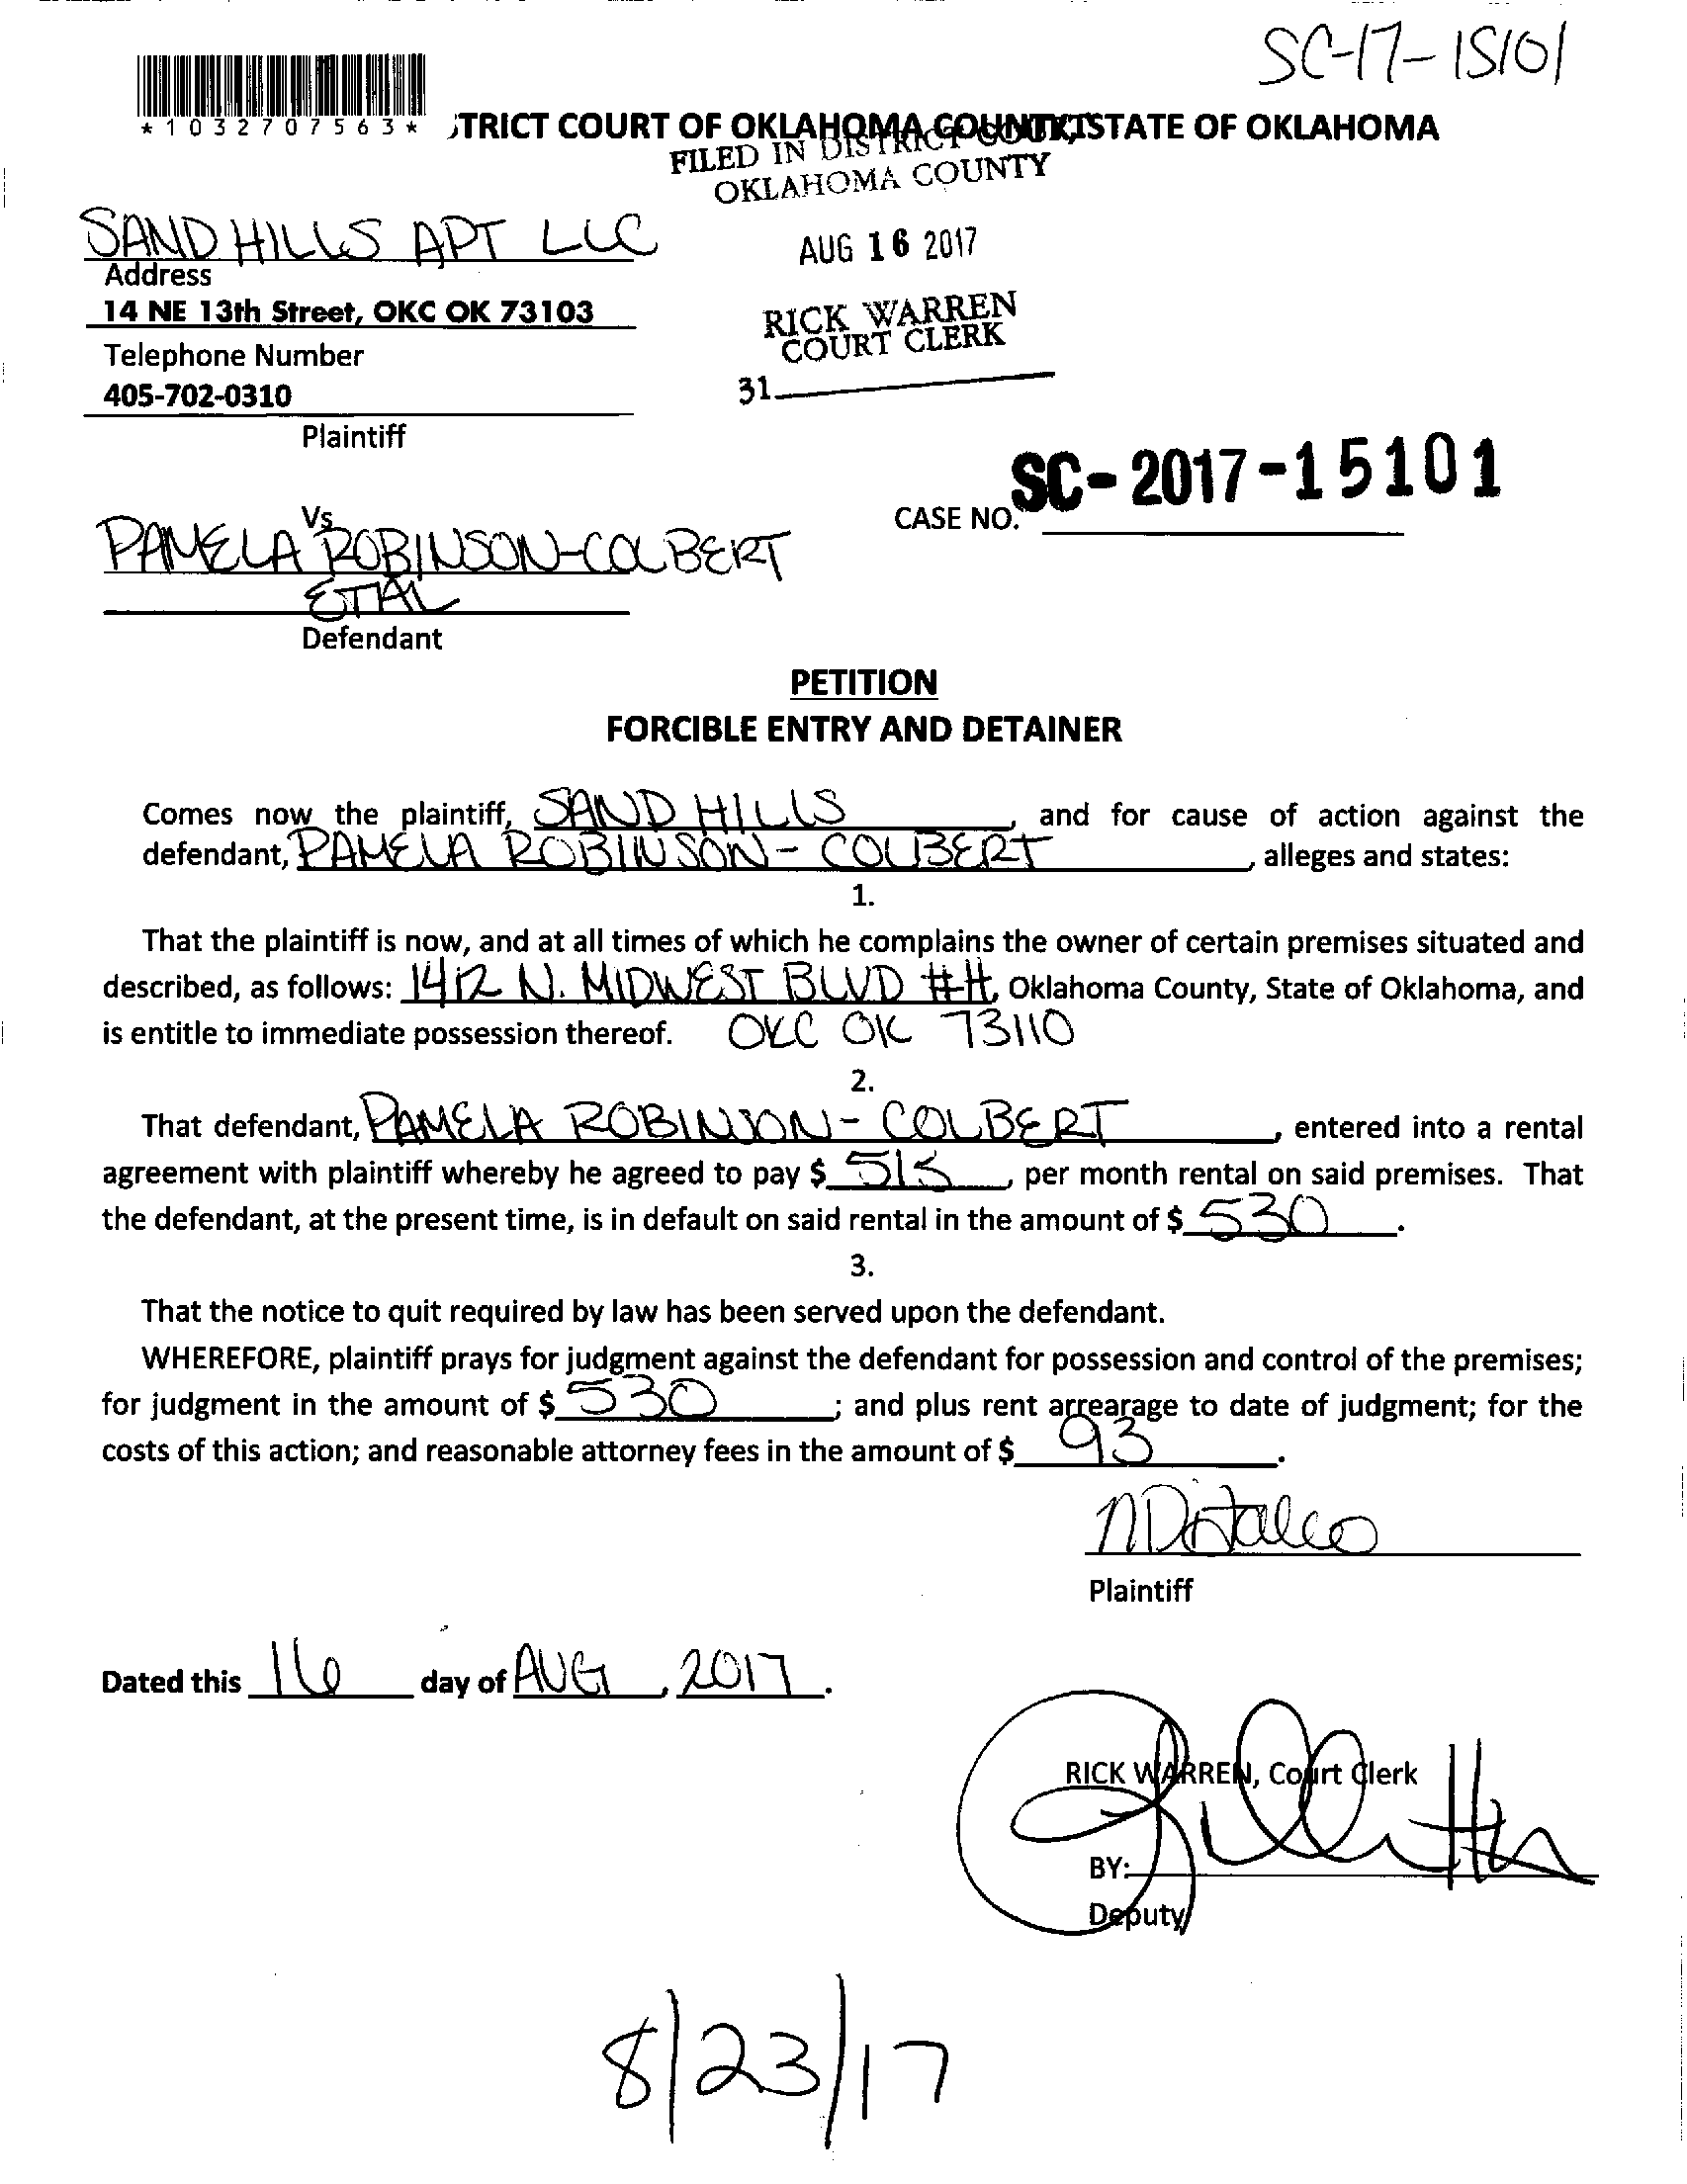 SC-17-15101
*1032707563* STRICT COURT OF OKLAHOMA COUNTY, STATE OF OKLAHOMA
FILED IN DISTRICT COURT
OKLAHOMA COUNTY
SAND HILLS APT LLC
AUG 16 2017
Address
14 NE 13th Street, OKC OK 73103
RICK WARREN
COURT CLERK
Telephone Number
405-702-0310
31
Plaintiff
SC-2017-15101
Vs
CASE NO.
PAMELA ROBINSON-COLBERT
ETAL
Defendant
PETITION
FORCIBLE ENTRY AND DETAINER
Comes now the plaintiff, SAND HILLS, and for cause of action against the
defendant, PAMELA ROBINSON-COLBERT, alleges and states:
1.
That the plaintiff is now, and at all times of which he complains the owner of certain premises situated and
described, as follows: 1412 N. MIDWEST BLVD #H, Oklahoma County, State of Oklahoma, and
is entitle to immediate possession thereof. OKC OK 73110
2.
That defendant, PAMELA ROBINSON-COLBERT, entered into a rental
agreement with plaintiff whereby he agreed to pay $ 515, per month rental on said premises. That
the defendant, at the present time, is in default on said rental in the amount of $ 530.
3.
That the notice to quit required by law has been served upon the defendant.
WHEREFORE, plaintiff prays for judgment against the defendant for possession and control of the premises;
for judgment in the amount of $ 530; and plus rent arrearage to date of judgment; for the
costs of this action; and reasonable attorney fees in the amount of $ 93.
Plaintiff
Dated this 16 day of AUG, 2017.
RICK WARREN, Court Clerk
BY:
Deputy
8/23/17